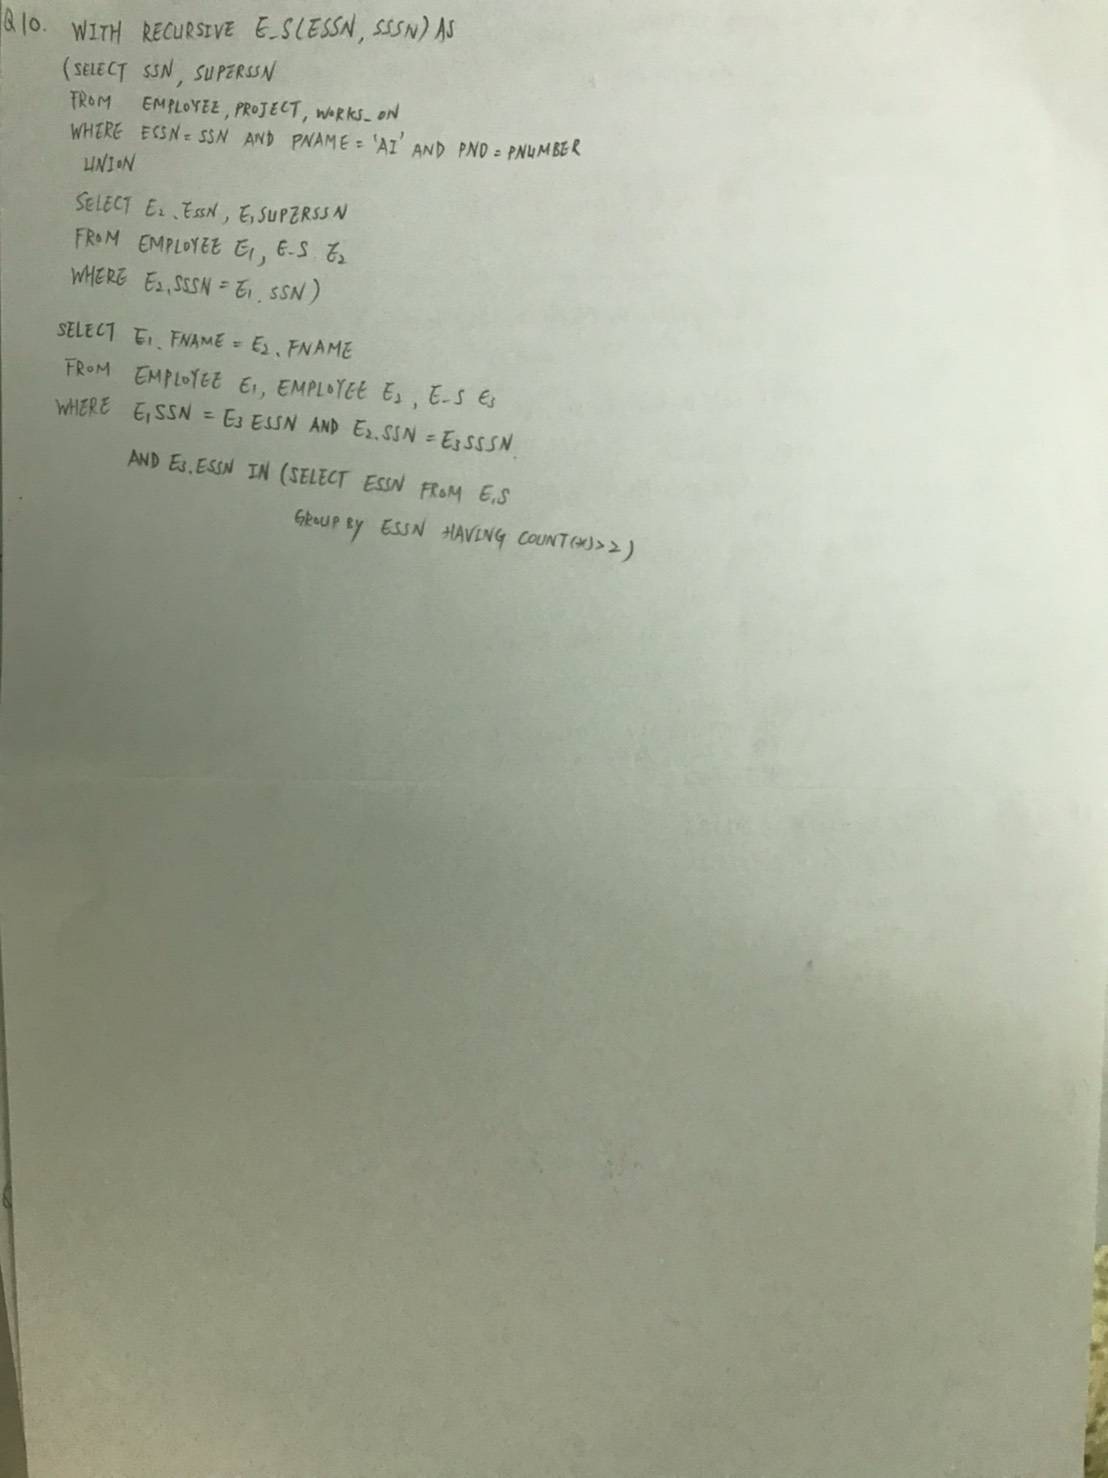 Q10. WITH RECURSIVE E_S(ESSN, SSSN) AS
(SELECT SSN, SUPERSSN
FROM EMPLOYEE, PROJECT, WORKS_ON
WHERE ESSN = SSN AND PNAME = 'AI' AND PNO = PNUMBER
UNION
SELECT E2.ESSN, E1SUPERSSN
FROM EMPLOYEE E1, E-S E2
WHERE E2.SSSN = E1.SSN)
SELECT E1.FNAME = E2.FNAME
FROM EMPLOYEE E1, EMPLOYEE E2, E-S E3
WHERE E1SSN = E3 ESSN AND E2.SSN = E3SSSN.
AND E3.ESSN IN (SELECT ESSN FROM E.S
GROUP BY ESSN HAVING COUNT(*)>2)